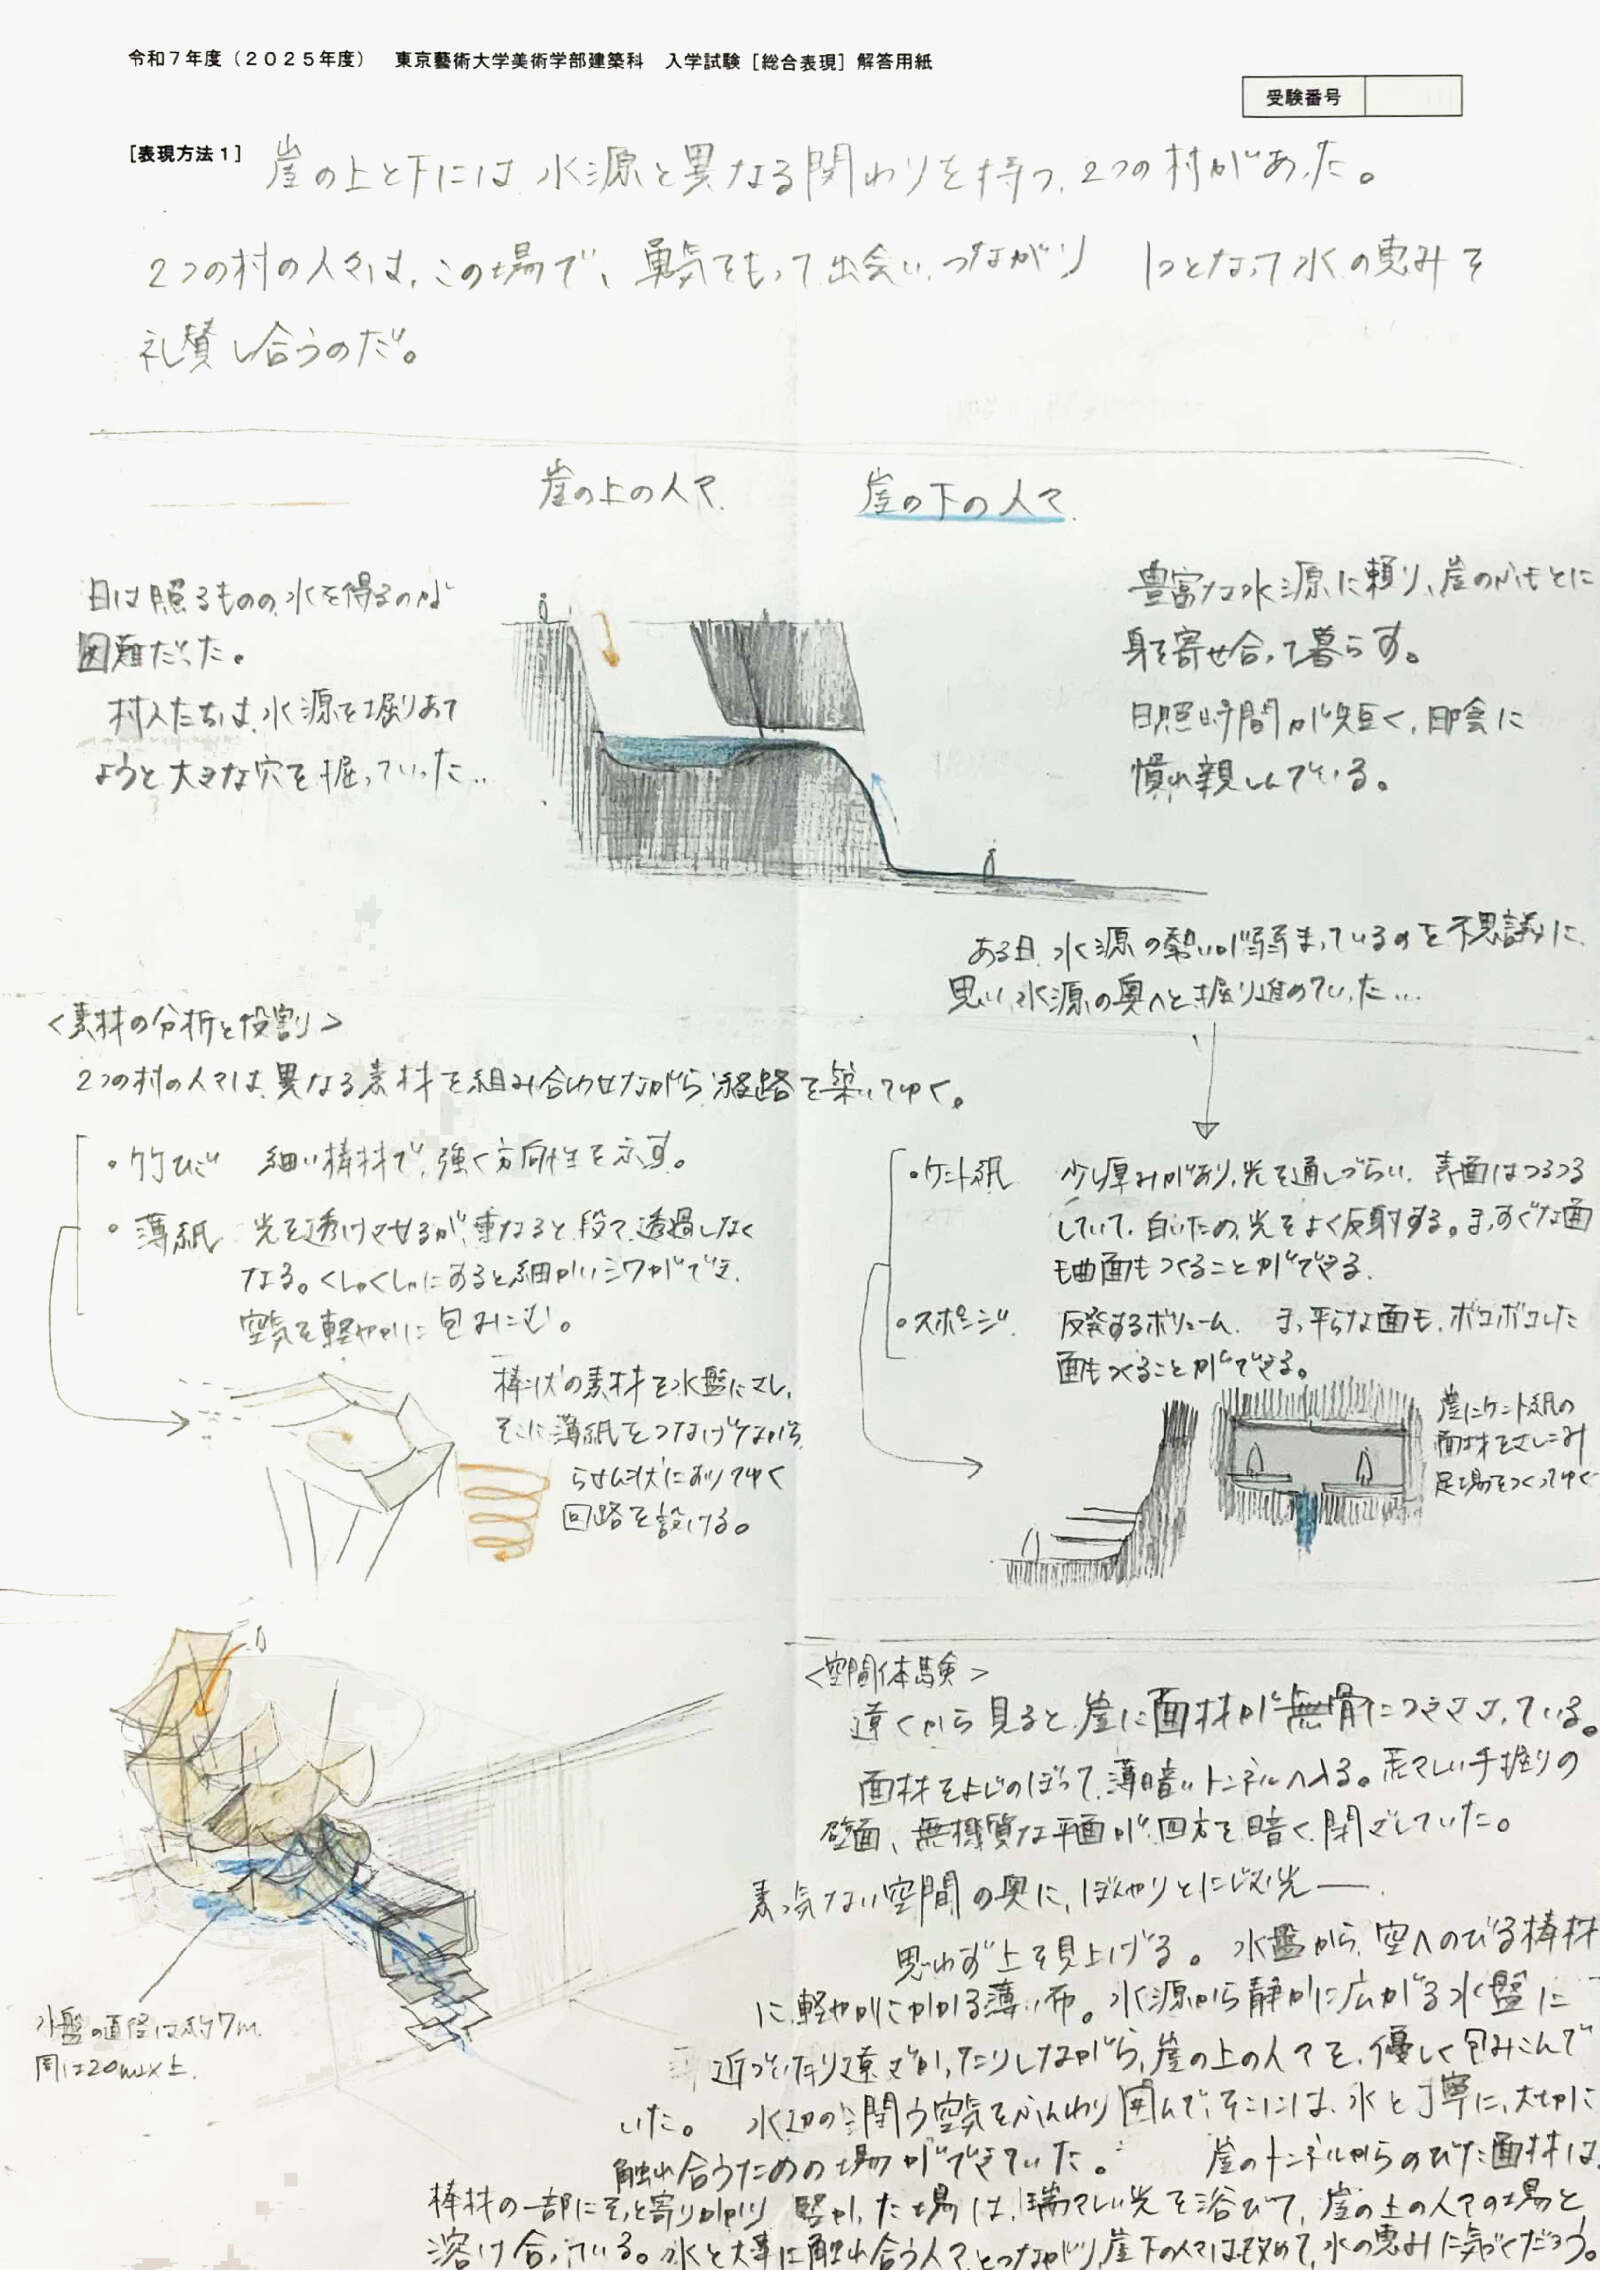 令和７年度（２０２５年度）　東京藝術大学美術学部建築科　入学試験［総合表現］解答用紙
受験番号
［表現方法１］
崖の上と下には、水源と異なる関わりを持つ、2つの村があった。
2つの村の人々は、この場で、勇気をもって出会い、つながり　1つとなって水の恵みを
礼賛し合うのだ。
崖の上の人々
崖の下の人々
日は照るものの、水を得るのが
困難だった。
村人たちは、水源を掘りあて
ようと大きな穴を掘っていった…
豊富な水源に頼り、崖のふもとに
身を寄せ合って暮らす。
日照時間が短く、日陰に
慣れ親しんでいる。
ある日、水源の勢いが弱まっているのを不思議に
思い、水源の奥へと掘り進めていった…
＜素材の分析と役割＞
2つの村の人々は、異なる素材を組み合わせながら、経路を築いてゆく。
・竹ひご　細い棒材で、強く方向性を示す。
・薄紙　光を透けさせるが、重なると段々透過しなく
なる。くしゃくしゃにすると細かいシワができ、
空気を軽やかに包みこむ。
棒状の素材を水盤にさし、
そこに薄紙をつなげながら
らせん状におりてゆく
回路を設ける。
・ケント紙　少し厚みがあり、光を通しづらい。表面はつるつる
していて、白いため、光をよく反射する。まっすぐな面
も曲面もつくることができる。
・スポンジ　反発するボリューム。まっ平らな面も、ボコボコした
面もつくることができる。
崖にケント紙の
面材をさしこみ
足場をつくってゆく
水盤の直径は約7m、
周は20m以上。
＜空間体験＞
遠くから見ると、崖に面材が無骨につきささっている。
面材をよじのぼって、薄暗いトンネルへ入る。荒々しい手掘りの
壁面、無機質な平面が、四方を暗く、閉ざしていた。
素っ気ない空間の奥に、ぼんやりとにじむ光――。
思わず上を見上げる。水盤から、空へのびる棒材
に、軽やかにかかる薄い布。水源から静かに広がる水盤に
近づいたり遠ざかったりしながら、崖の上の人々を、優しく包みこんで
いた。　水辺の潤う空気をふんわり囲んで、そこには、水と丁寧に、大切に
触れ合うための場ができていた。　崖のトンネルからのびた面材は、
棒材の一部にそっと寄りかかり　竪かった場は、瑞々しい光を浴びて、崖の上の人々の場と
溶け合っている。水と大事に触れ合う人々とつながり、崖下の人々は改めて、水の恵みに気づくだろう。